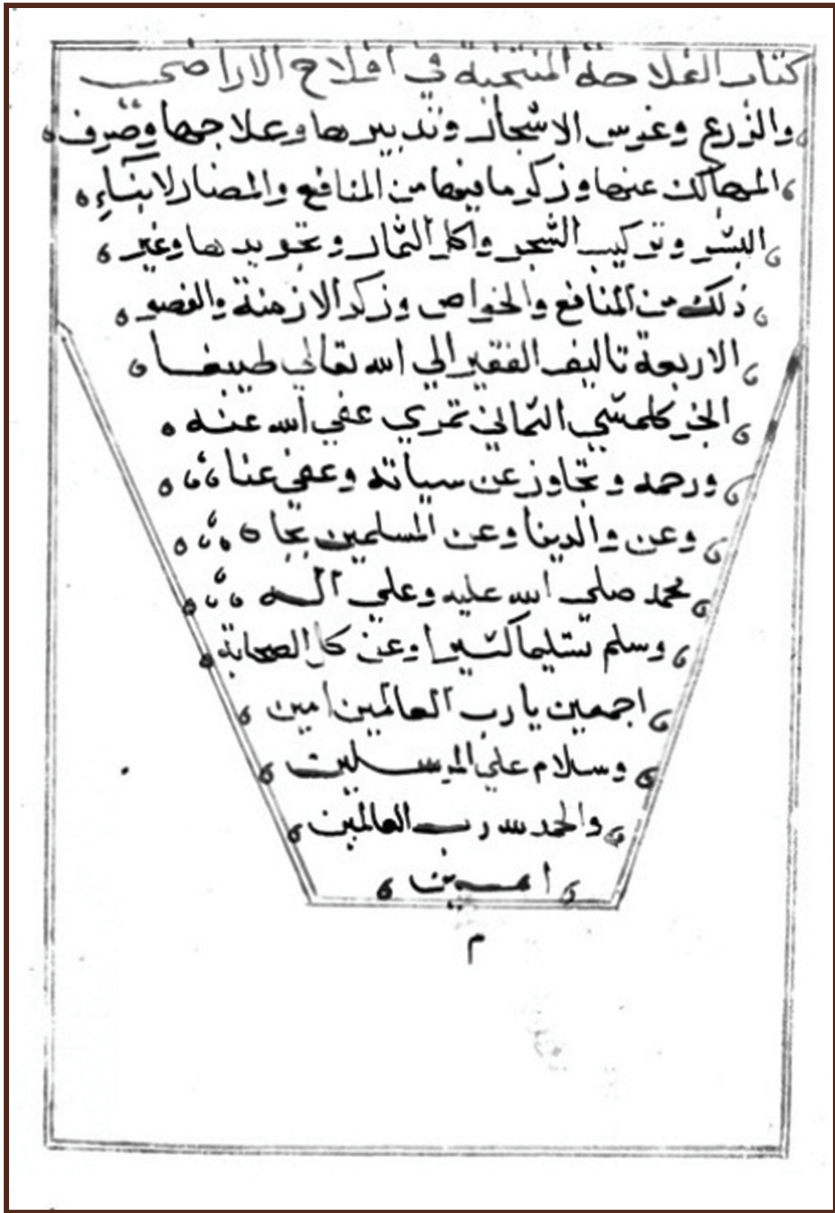 كتاب الفلاحة المنتخبة في افلاح الاراضي
والزرع وغرس الاشجار وتدبيرها وعلاجها وصرف
المهالك عنها وزكر ما فيها من المنافع والمضار لابناء
البشر وتركيب الشجر واكل الثمار وتجويدها وغير
ذلك من المنافع والخواص وزكر الازمنة والفصو
الاربعة تاليف الفقير الي الله تعالي طيبغا
الجركلمشي التماني تمري عفي الله عنه
ورحمه وتجاوز عن سياته وعفي عنا
وعن والدينا وعن المسلمين بجا
محمد صلي الله عليه وعلي اله
وسلم تسليما كثيرا وعن كل الصحابة
اجمعين يا رب العالمين امين
وسلام علي المرسلين
والحمد لله رب العالمين
امين
م